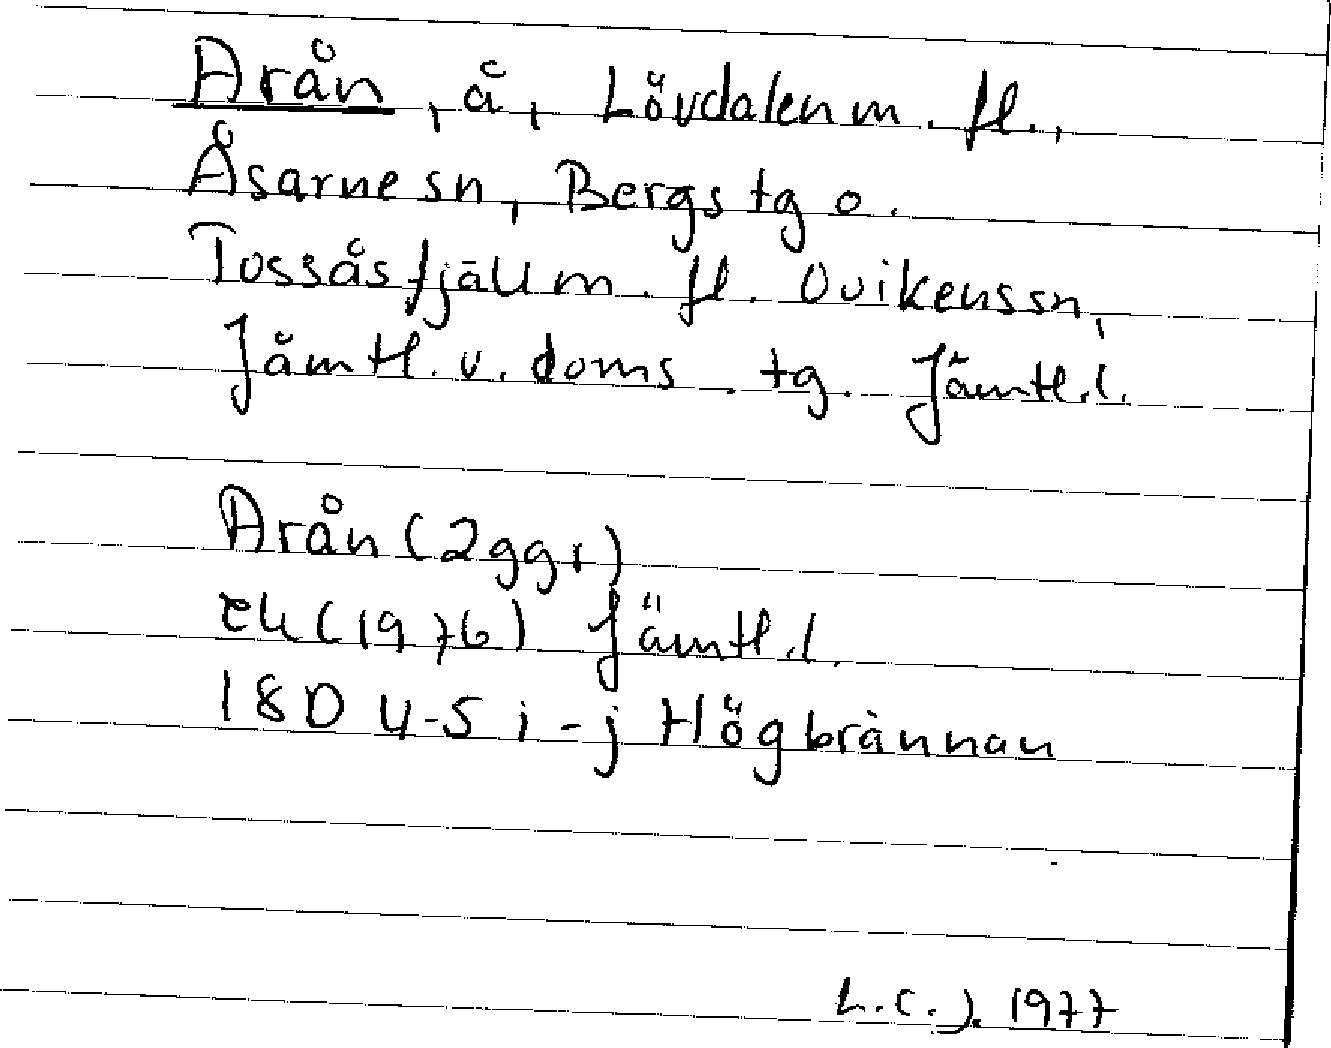 Arån, å, Lövdalen m. fl.,
Åsarne sn, Bergs tg o.
Tossåsfjäll m. fl. Ovikens sn,
Jämtl. v. doms. tg. Jämtl. l.
Arån (2 ggr)
ek (1976) Jämtl. l.
18D 4-5 i-j Högbrännan
L.C.J. 1977